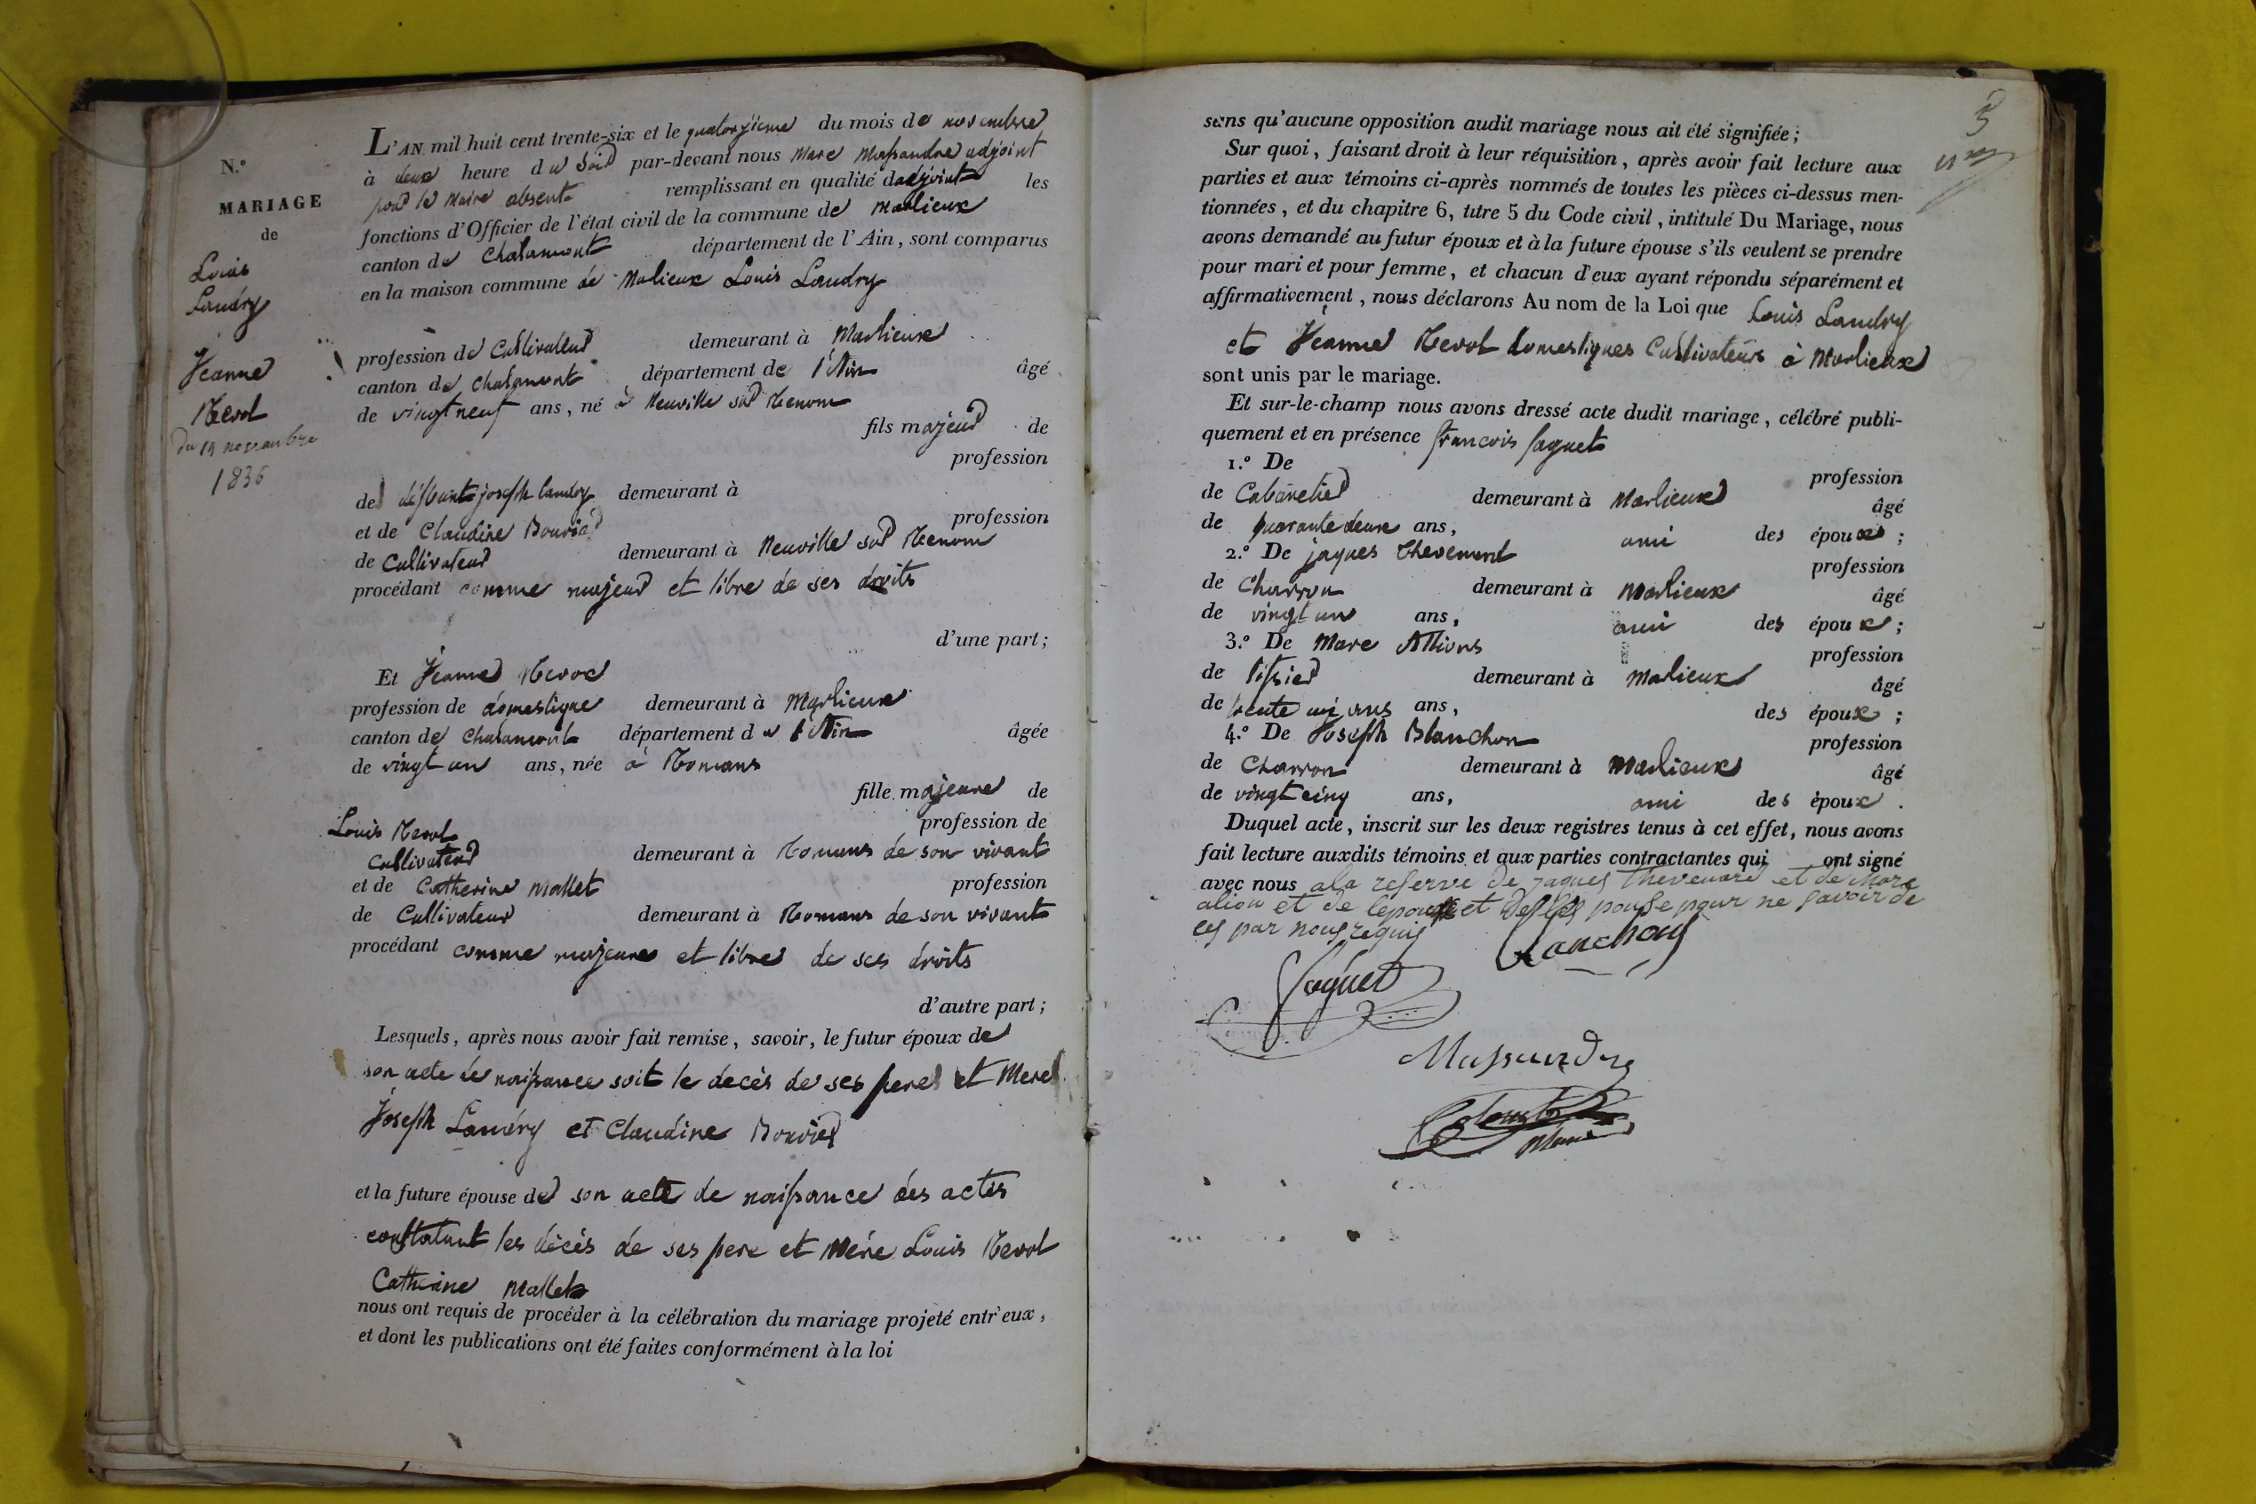 N.°
MARIAGE
de
Louis
Landry
Jeanne
Revol
du 14 novembre
1836
L'AN mil huit cent trente-six et le quatorzieme du mois de novembre
à deux heure du soir par-devant nous Marc Massandre adjoint
pour le Maire absent remplissant en qualité dadjoint les
fonctions d'Officier de l'état civil de la commune de Marlieux
canton de Chalamont département de l'Ain, sont comparus
en la maison commune de Malieux Louis Landry
profession de Cultivateur demeurant à Marlieux
canton de chalamont département de l'Ain âgé
de vingt neuf ans, né à Neuville sur Renom
fils majeur de
profession
de défunt joseph landry demeurant à
et de Claudine Bouvier profession
de Cultivateur demeurant à Neuville sur Renom
procédant comme majeur et libre de ses droits
d'une part;
Et Jeanne Revol
profession de domestique demeurant à Marlieux
canton de Chalamont département de l'Ain âgée
de vingt un ans, née à Romans
fille majeure de
Louis Revol profession de
Cultivateur demeurant à Romans de son vivant
et de Catherine Mallet profession
de Cultivateur demeurant à Romans de son vivant
procédant comme majeure et libre de ses droits
d'autre part;
Lesquels, après nous avoir fait remise, savoir, le futur époux de
son acte de naissance soit le decès de ses pere et Mere
Joseph Landry et Claudine Bouvier
et la future épouse de son acte de naissance des actes
constatant les décès de ses pere et Mére Louis Revol
Catherine Mallet
nous ont requis de procéder à la célébration du mariage projeté entr'eux,
et dont les publications ont été faites conformément à la loi
3
sans qu'aucune opposition audit mariage nous ait été signifiée;
Sur quoi, faisant droit à leur réquisition, après avoir fait lecture aux
parties et aux témoins ci-après nommés de toutes les pièces ci-dessus men-
tionnées, et du chapitre 6, titre 5 du Code civil, intitulé Du Mariage, nous
avons demandé au futur époux et à la future épouse s'ils veulent se prendre
pour mari et pour femme, et chacun d'eux ayant répondu séparément et
affirmativement, nous déclarons Au nom de la Loi que Louis Landry
et Jeanne Revol domestiques Cultivateurs à Marlieux
sont unis par le mariage.
Et sur-le-champ nous avons dressé acte dudit mariage, célébré publi-
quement et en présence francois Jaquet
1.° De profession
de Cabaretier demeurant à Marlieux âgé
de quarante deux ans, ami des époux;
2.° De jaques Thevenard profession
de Charron demeurant à Marlieux âgé
de vingt un ans, ami des époux;
3.° De Marc Allions profession
de Tissier demeurant à Malieux âgé
de trente ans, des époux;
4.° De Joseph Blanchon profession
de Charron demeurant à Marlieux âgé
de vingt cinq ans, ami des époux.
Duquel acte, inscrit sur les deux registres tenus à cet effet, nous avons
fait lecture auxdits témoins et aux parties contractantes qui ont signé
avec nous ala reserve de jaques Thevenard et de Marc
alion et de lepoux et de lépouse pour ne savoir de
ces par nous requis
Blanchon
Jaquet
Massandre
Maire